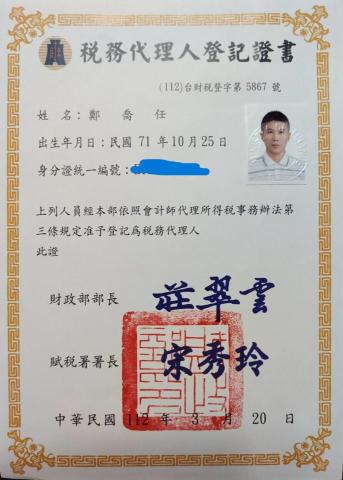 稅務代理人登記證書
(112)台財稅登字第 5867 號
姓名：鄭喬任
出生年月日：民國 71 年 10 月 25 日
身分證統一編號：
上列人員經本部依照會計師代理所得稅事務辦法第
三條規定准予登記為稅務代理人
此證
財政部部長 莊翠雲
賦稅署署長 宋秀玲
中華民國 112 年 3 月 20 日